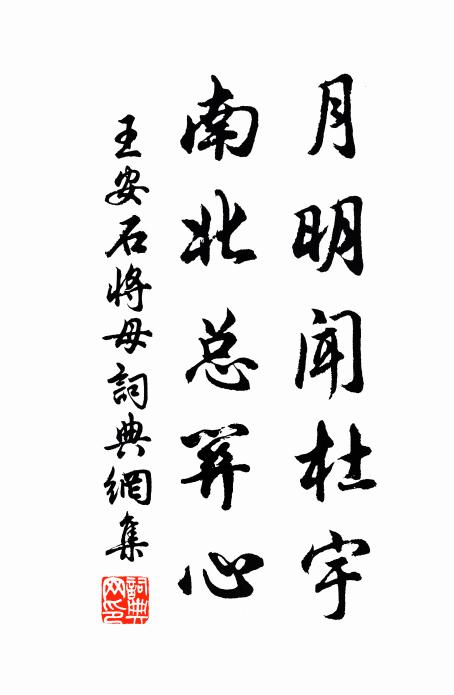 月明闻杜宇
南北总関心
王安石將母詞典網集
詞典网印